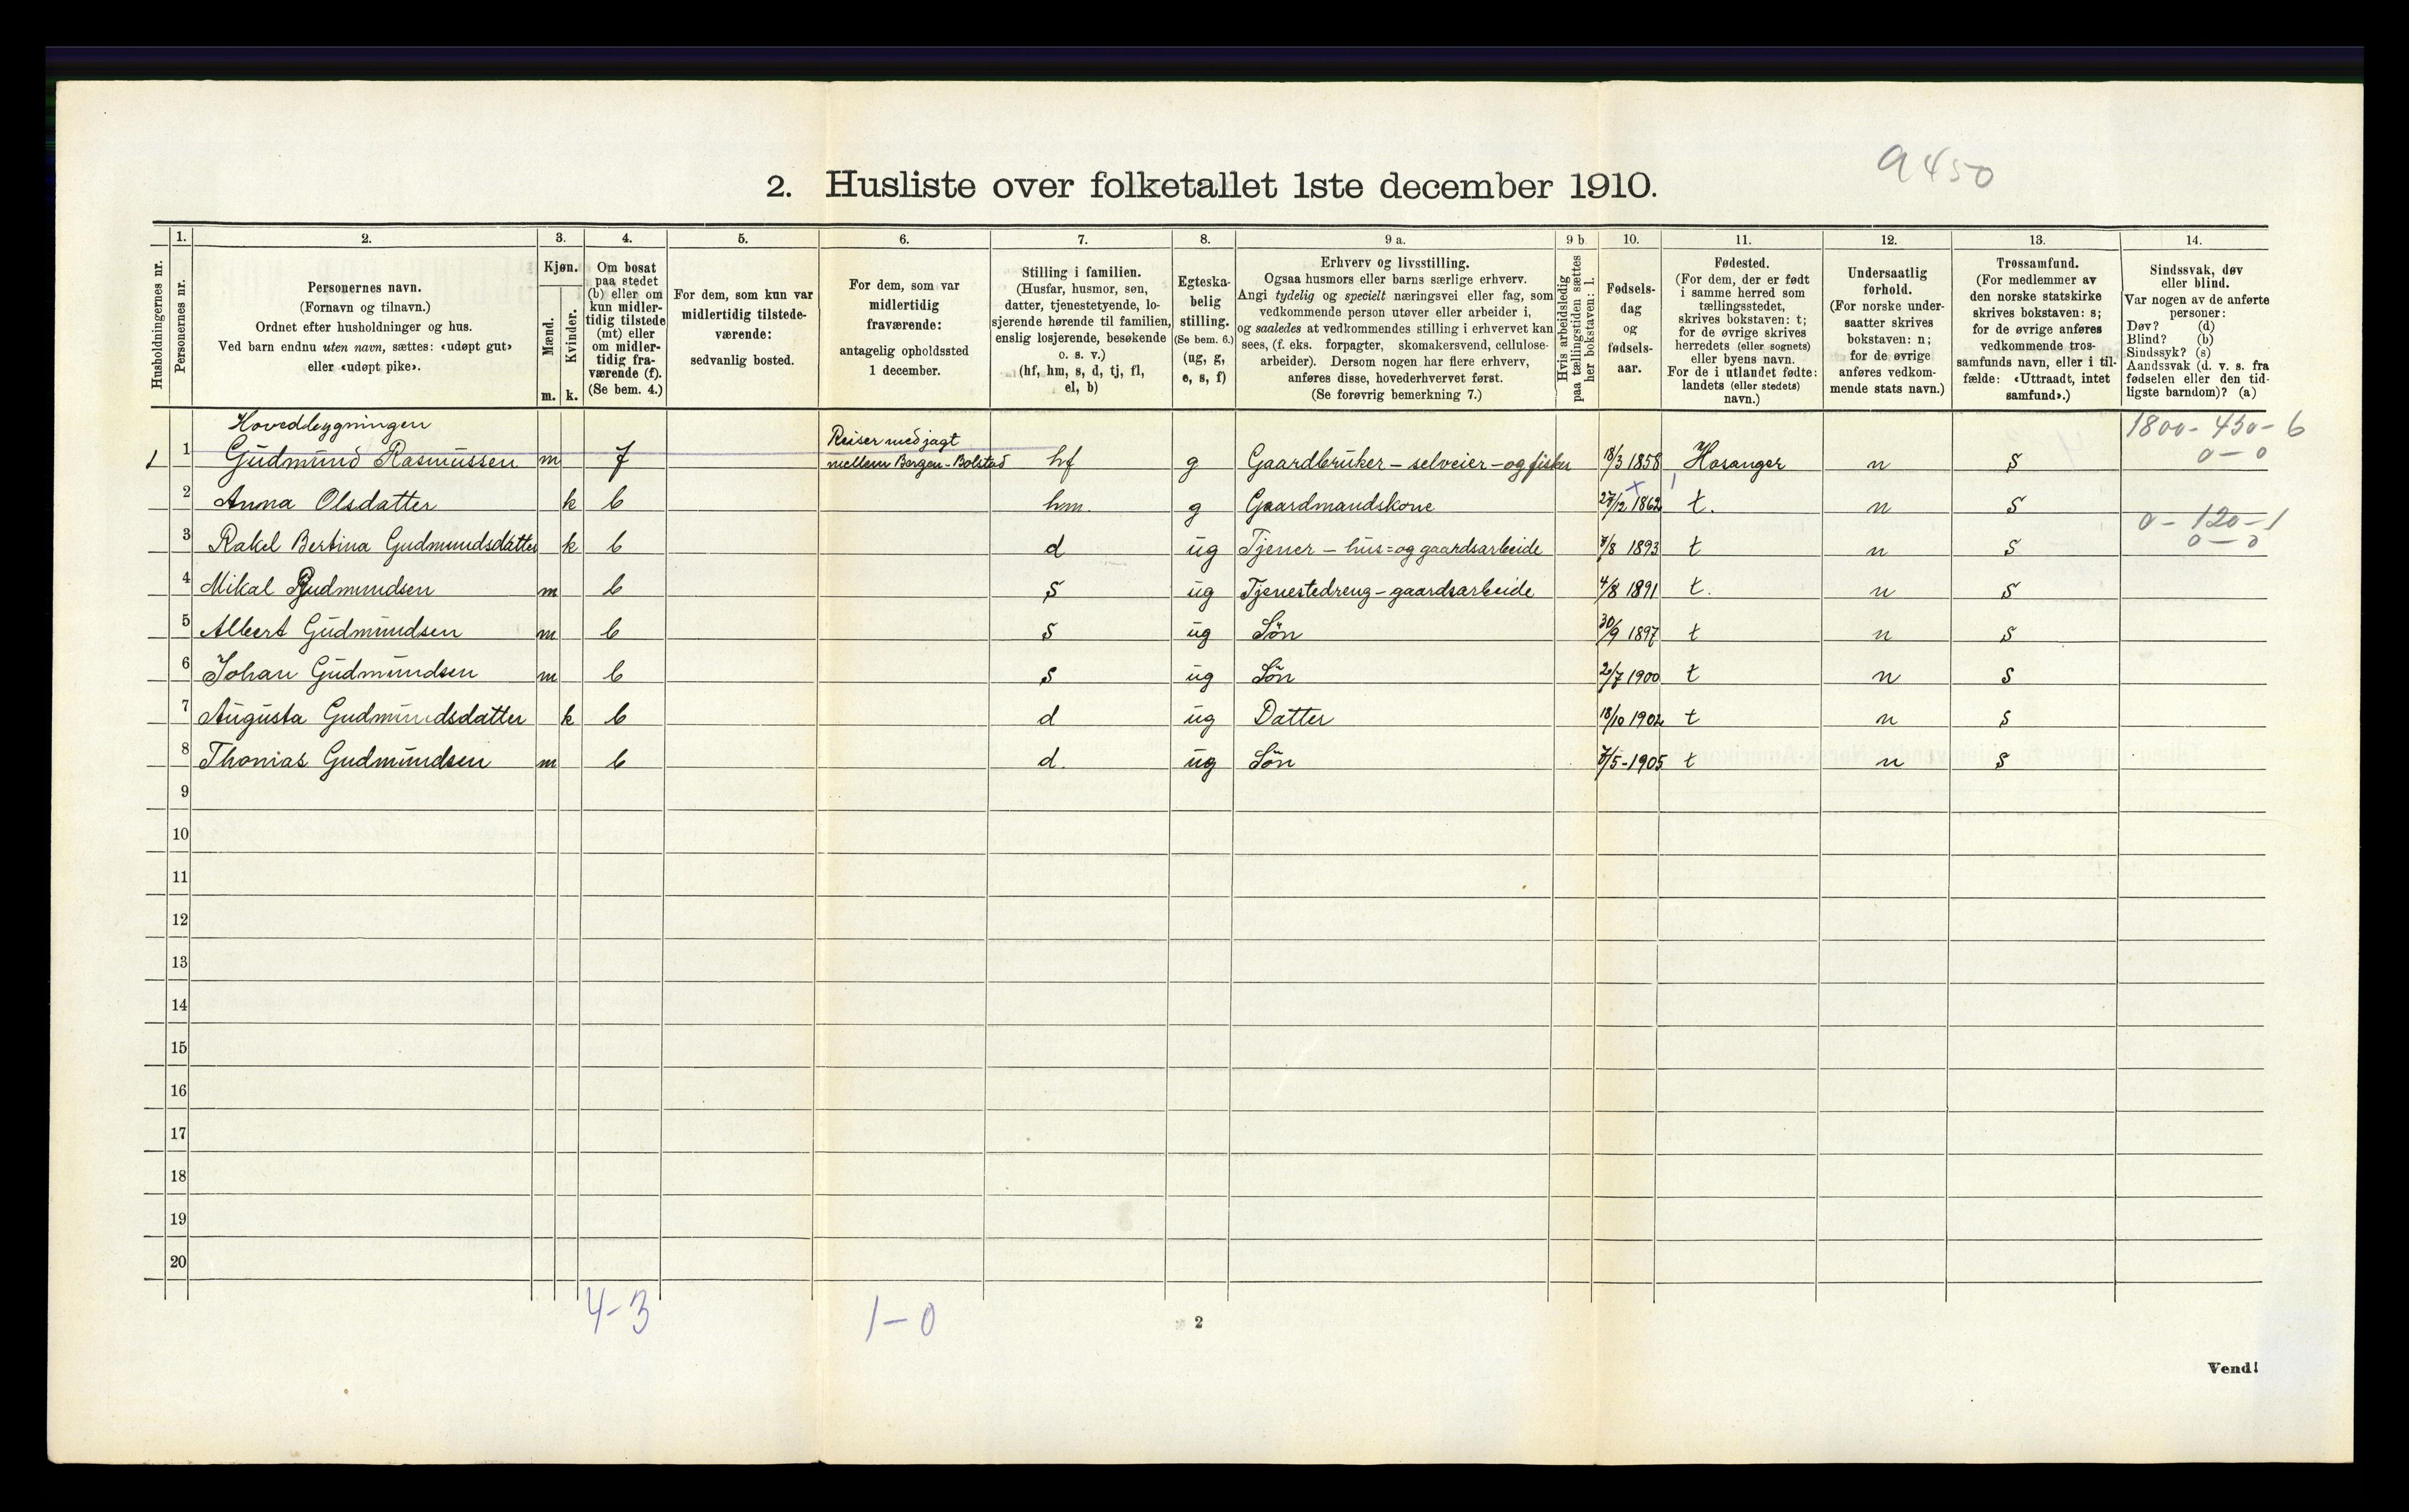 9450
2. Husliste over folketallet 1ste december 1910.
Husholdningernes nr.
1. Personernes nr.
2. Personernes navn.
(Fornavn og tilnavn.)
Ordnet efter husholdninger og hus.
Ved barn endnu uten navn, sættes: «udøpt gut»
eller «udøpt pike».
3. Kjøn.
Mænd. m.
Kvinder. k.
4. Om bosat
paa stedet
(b) eller om
kun midler-
tidig tilstede
(mt) eller
om midler-
tidig fra-
værende (f).
(Se bem. 4.)
5. For dem, som kun var
midlertidig tilstede-
værende:
sedvanlig bosted.
6. For dem, som var
midlertidig
fraværende:
antagelig opholdssted
1 december.
7. Stilling i familien.
(Husfar, husmor, søn,
datter, tjenestetyende, lo-
sjerende hørende til familien,
enslig losjerende, besøkende
o. s. v.)
(hf, hm, s, d, tj, fl,
el, b)
8. Egteska-
belig
stilling.
(Se bem. 6.)
(ug, g,
e, s, f)
9 a. Erhverv og livsstilling.
Ogsaa husmors eller barns særlige erhverv.
Angi tydelig og specielt næringsvei eller fag, som
vedkommende person utøver eller arbeider i,
og saaledes at vedkommendes stilling i erhvervet kan
sees, (f. eks. forpagter, skomakersvend, cellulose-
arbeider). Dersom nogen har flere erhverv,
anføres disse, hovederhvervet først.
(Se forøvrig bemerkning 7.)
9 b Hvis arbeidsledig
paa tællingstiden sættes
her bokstaven: l.
10. Fødsels-
dag
og
fødsels-
aar.
11. Fødested.
(For dem, der er født
i samme herred som
tællingsstedet,
skrives bokstaven: t;
for de øvrige skrives
herredets (eller sognets)
eller byens navn.
For de i utlandet fødte:
landets (eller stedets)
navn.)
12. Undersaatlig
forhold.
(For norske under-
saatter skrives
bokstaven: n;
for de øvrige
anføres vedkom-
mende stats navn.)
13. Trossamfund.
(For medlemmer av
den norske statskirke
skrives bokstaven: s;
for de øvrige anføres
vedkommende tros-
samfunds navn, eller i til-
fælde: «Uttraadt, intet
samfund».)
14. Sindssvak, døv
eller blind.
Var nogen av de anførte
personer:
Døv? (d)
Blind? (b)
Sindssyk? (s)
Aandssvak (d. v. s. fra
fødselen eller den tid-
ligste barndom)? (a)
Hovedbygningen
Reiser med jagt
1800-450-6
1 1 Gudmund Rasmussen m f mellem Bergen-Bolstad hf g Gaardbruker - selveier - og fisker 18/3 1858 Hosanger n s
0-0
2 Anna Olsdatter k b hm. g Gaardmandskone 27/12 1862 t. n s
0-120-1
3 Rakel Bertina Gudmundsdatter k b d ug Tjener - hus= og gaardsarbeide 7/8 1893 t n s
0-0
4 Mikal Gudmundsen m b s ug Tjenestedreng - gaardsarbeide 4/8 1891 t. n s
5 Albert Gudmundsen m b s ug Søn 30/9 1897 t n s
6 Johan Gudmundsen m b s ug Søn 2/7 1900 t n s
7 Augusta Gudmundsdatter k b d ug Datter 18/10 1902 t n s
8 Thomas Gudmundsen m b d. ug Søn 7/5-1905 t n s
9
10
11
12
13
14
15
16
17
18
19
20
4-3
1-0
2
Vend!